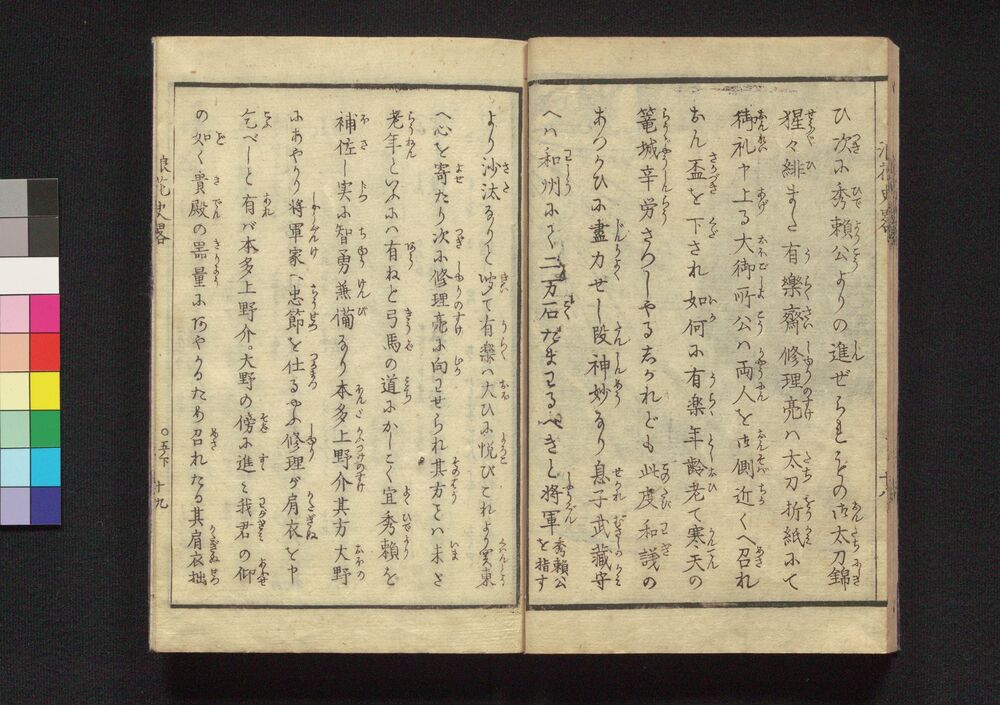 ひ次に秀頼公よりの進ぜらるゝとの御太刀錦
猩々緋また有樂齋修理亮ハ太刀折紙にて
御礼申上る大御所公ハ両人を御側近くへ召れ
なん盃を下され如何に有楽年齢老て寒天の
篭城辛労さつしやるされども此度和議の
あつかひに盡力せし段神妙なり息子武藏守
へハ和州にて二万石たまわるべきと将軍秀頼公を指す
より沙汰なりと
て有楽ハ大ひに悦びこれより関東
へ心を寄たり次に修理亮に向わせられ其方とハまだ
老年といふにハ有ねど弓馬の道にかしこく宜秀頼を
補佐し実に智勇兼備なり本多上野介其方大野
にあやかり将軍家へ忠節を仕るやう修理が肩衣を申
乞べしと有バ本多上野介。大野の傍に進ミ我君の仰
の如く貴殿の器量にあやかるため召れたる其肩衣拙
浪花史畧
〇五ノ下
十九